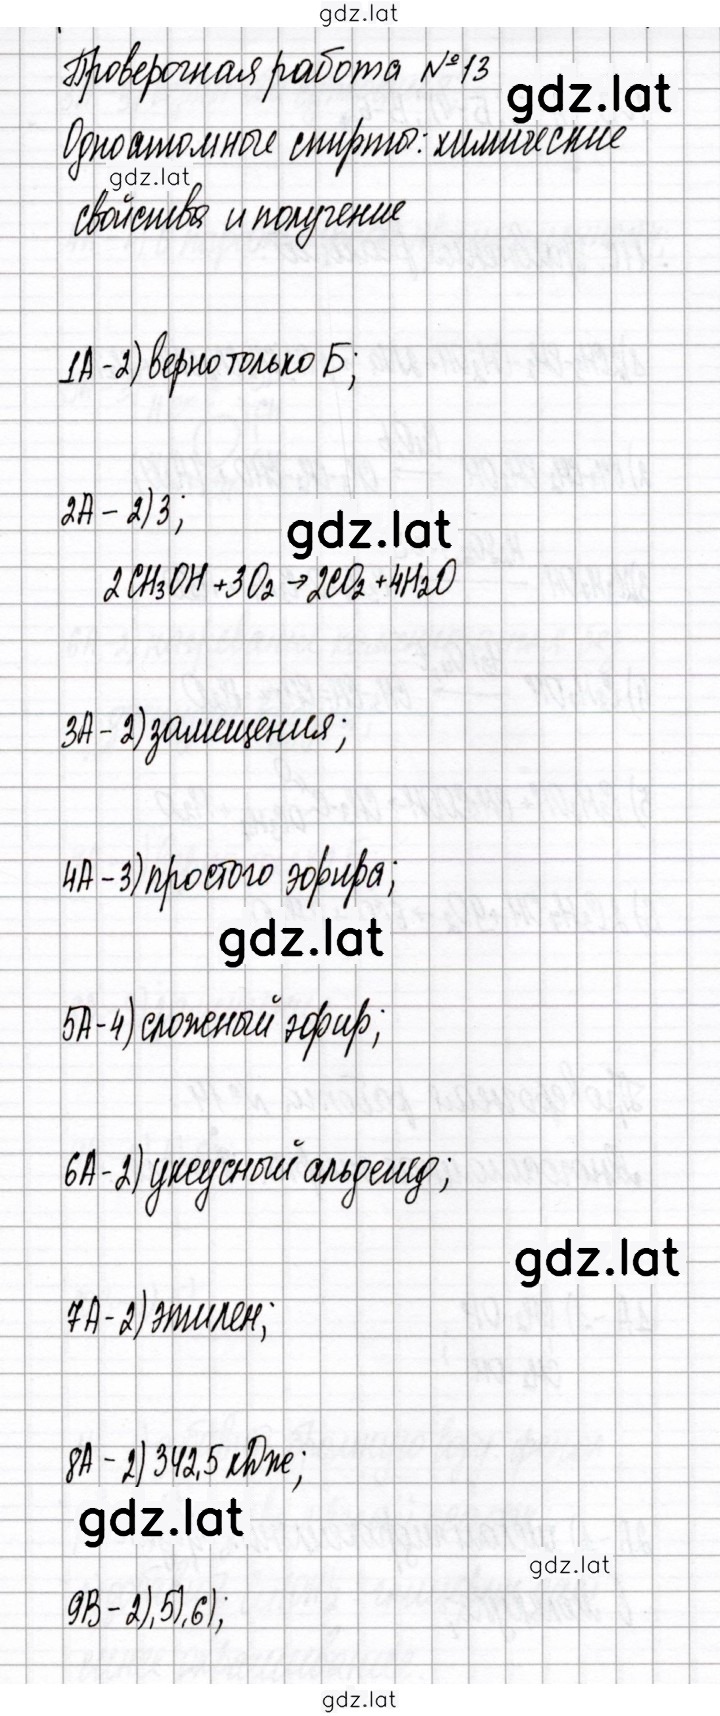 gdz.lat
Проверочная работа №13
gdz.lat
Одноатомные спирты: химические
gdz.lat
свойства и получение
1А - 2) верно только Б;
2А - 2) 3;
gdz.lat
2CH₃OH + 3O₂ → 2CO₂ + 4H₂O
3А - 2) замещения;
4А - 3) простого эфира;
gdz.lat
5А - 4) сложный эфир;
6А - 2) уксусный альдегид;
gdz.lat
7А - 2) этилен;
8А - 2) 342,5 кДж;
gdz.lat
gdz.lat
9В - 2), 5), 6);
gdz.lat